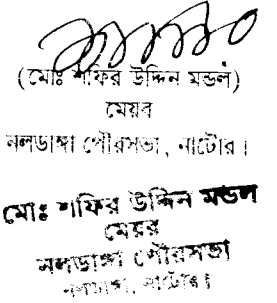 (মোঃ শফির উদ্দিন মন্ডল)
মেয়র
নলডাঙ্গা পৌরসভা, নাটোর।
মোঃ শফির উদ্দিন মন্ডল
মেয়র
নলডাঙ্গা পৌরসভা
নলডাঙ্গা, নাটোর।